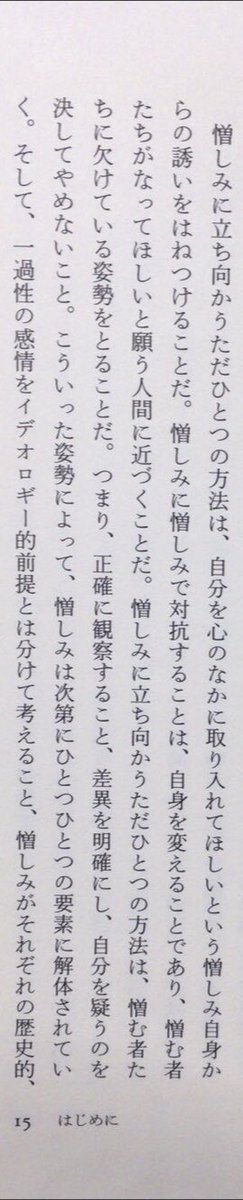 憎しみに立ち向かうただひとつの方法は、自分を心のなかに取り入れてほしいという憎しみ自身か
らの誘いをはねつけることだ。憎しみに憎しみで対抗することは、自身を変えることであり、憎む者
たちがなってほしいと願う人間に近づくことだ。憎しみに立ち向かうただひとつの方法は、憎む者た
ちに欠けている姿勢をとることだ。つまり、正確に観察すること、差異を明確にし、自分を疑うのを
決してやめないこと。こういった姿勢によって、憎しみは次第にひとつひとつの要素に解体されてい
く。そして、一過性の感情をイデオロギー的前提とは分けて考えること、憎しみがそれぞれの歴史的、
15 はじめに